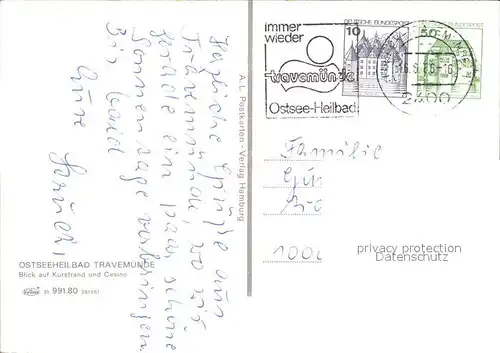 Herzliche Grüße aus
Travemünde, wo wir
gerade ein paar schöne
Sonnentage verbringen.
Bis bald
Eure
A.L. Postkarten - Verlag Hamburg
OSTSEEHEILBAD TRAVEMÜNDE
Blick auf Kurstrand und Casino
991.80
immer
wieder
travemünde
Ostsee-Heilbad
10
DEUTSCHE BUNDESPOST
50
BUNDESPOST
2400
Familie
privacy protection
Datenschutz